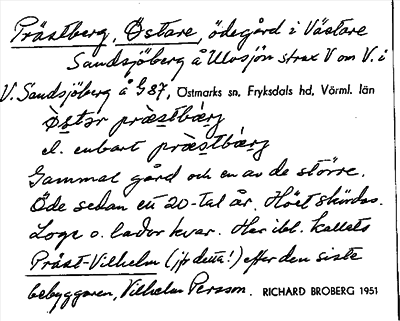 Prästberg, Östare, ödegård i Västare
Sandsjöberg å Ulvsjön strax V om V. i
V. Sandsjöberg å G 87, Östmarks sn, Fryksdals hd, Värml. län
Ö̀stər præ̀stbær̨g
el. enbart præ̀stbær̨g
Gammal gård och en av de större.
Öde sedan ett 20-tal år. Höet skördas.
Loge o. lador kvar. Har ibl. kallats
Präst-Vilhelm (jfr detta!) efter den siste
bebyggaren, Vilhelm Persson. RICHARD BROBERG 1951